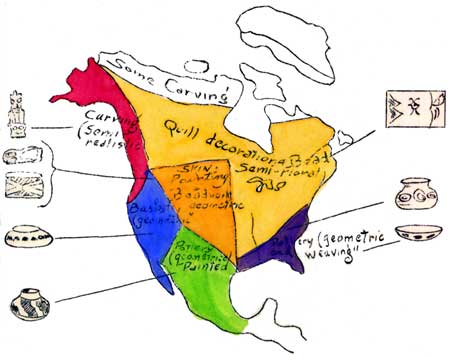 Some Carving
Carving
(Semi
realistic
Quill decoration
Semi-floral)
Skin
Painting
Beadwork
geometric
Basketry
"geometric"
Pottery
(geometrical
Painted
Pottery (geometric
and weaving"